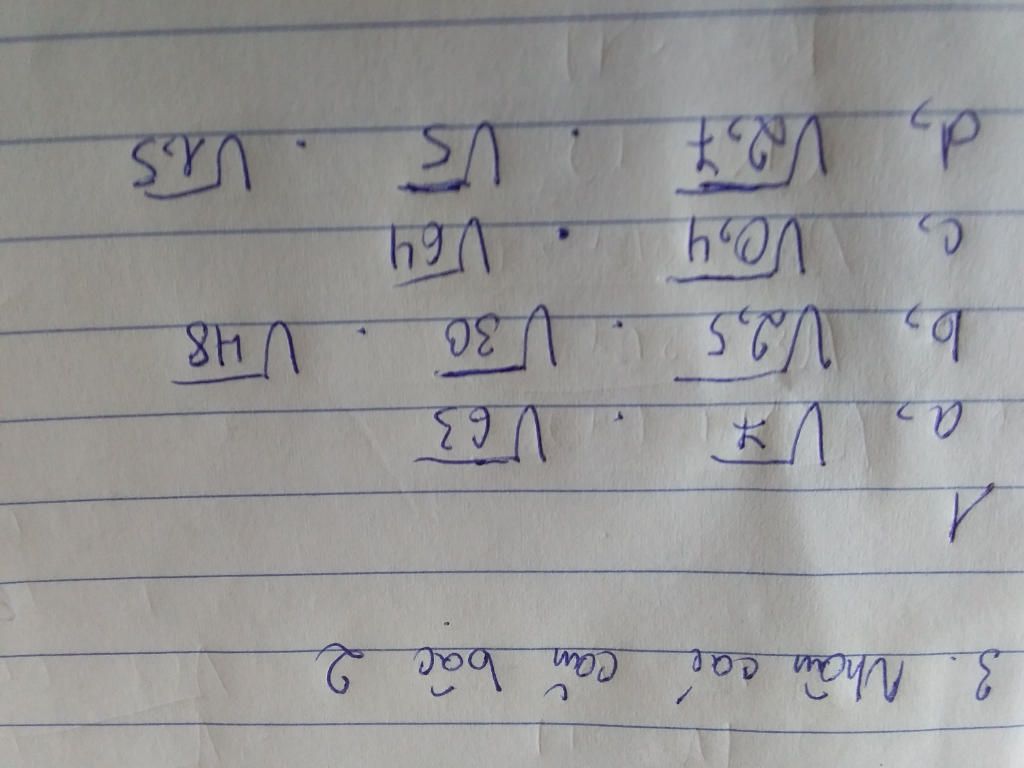 3. Nhân các căn bậc 2
1
a, √7 . √63
b, √2,5 . √30 . √48
c, √0,4 . √64
d, √2,7 . √5 . √1,5